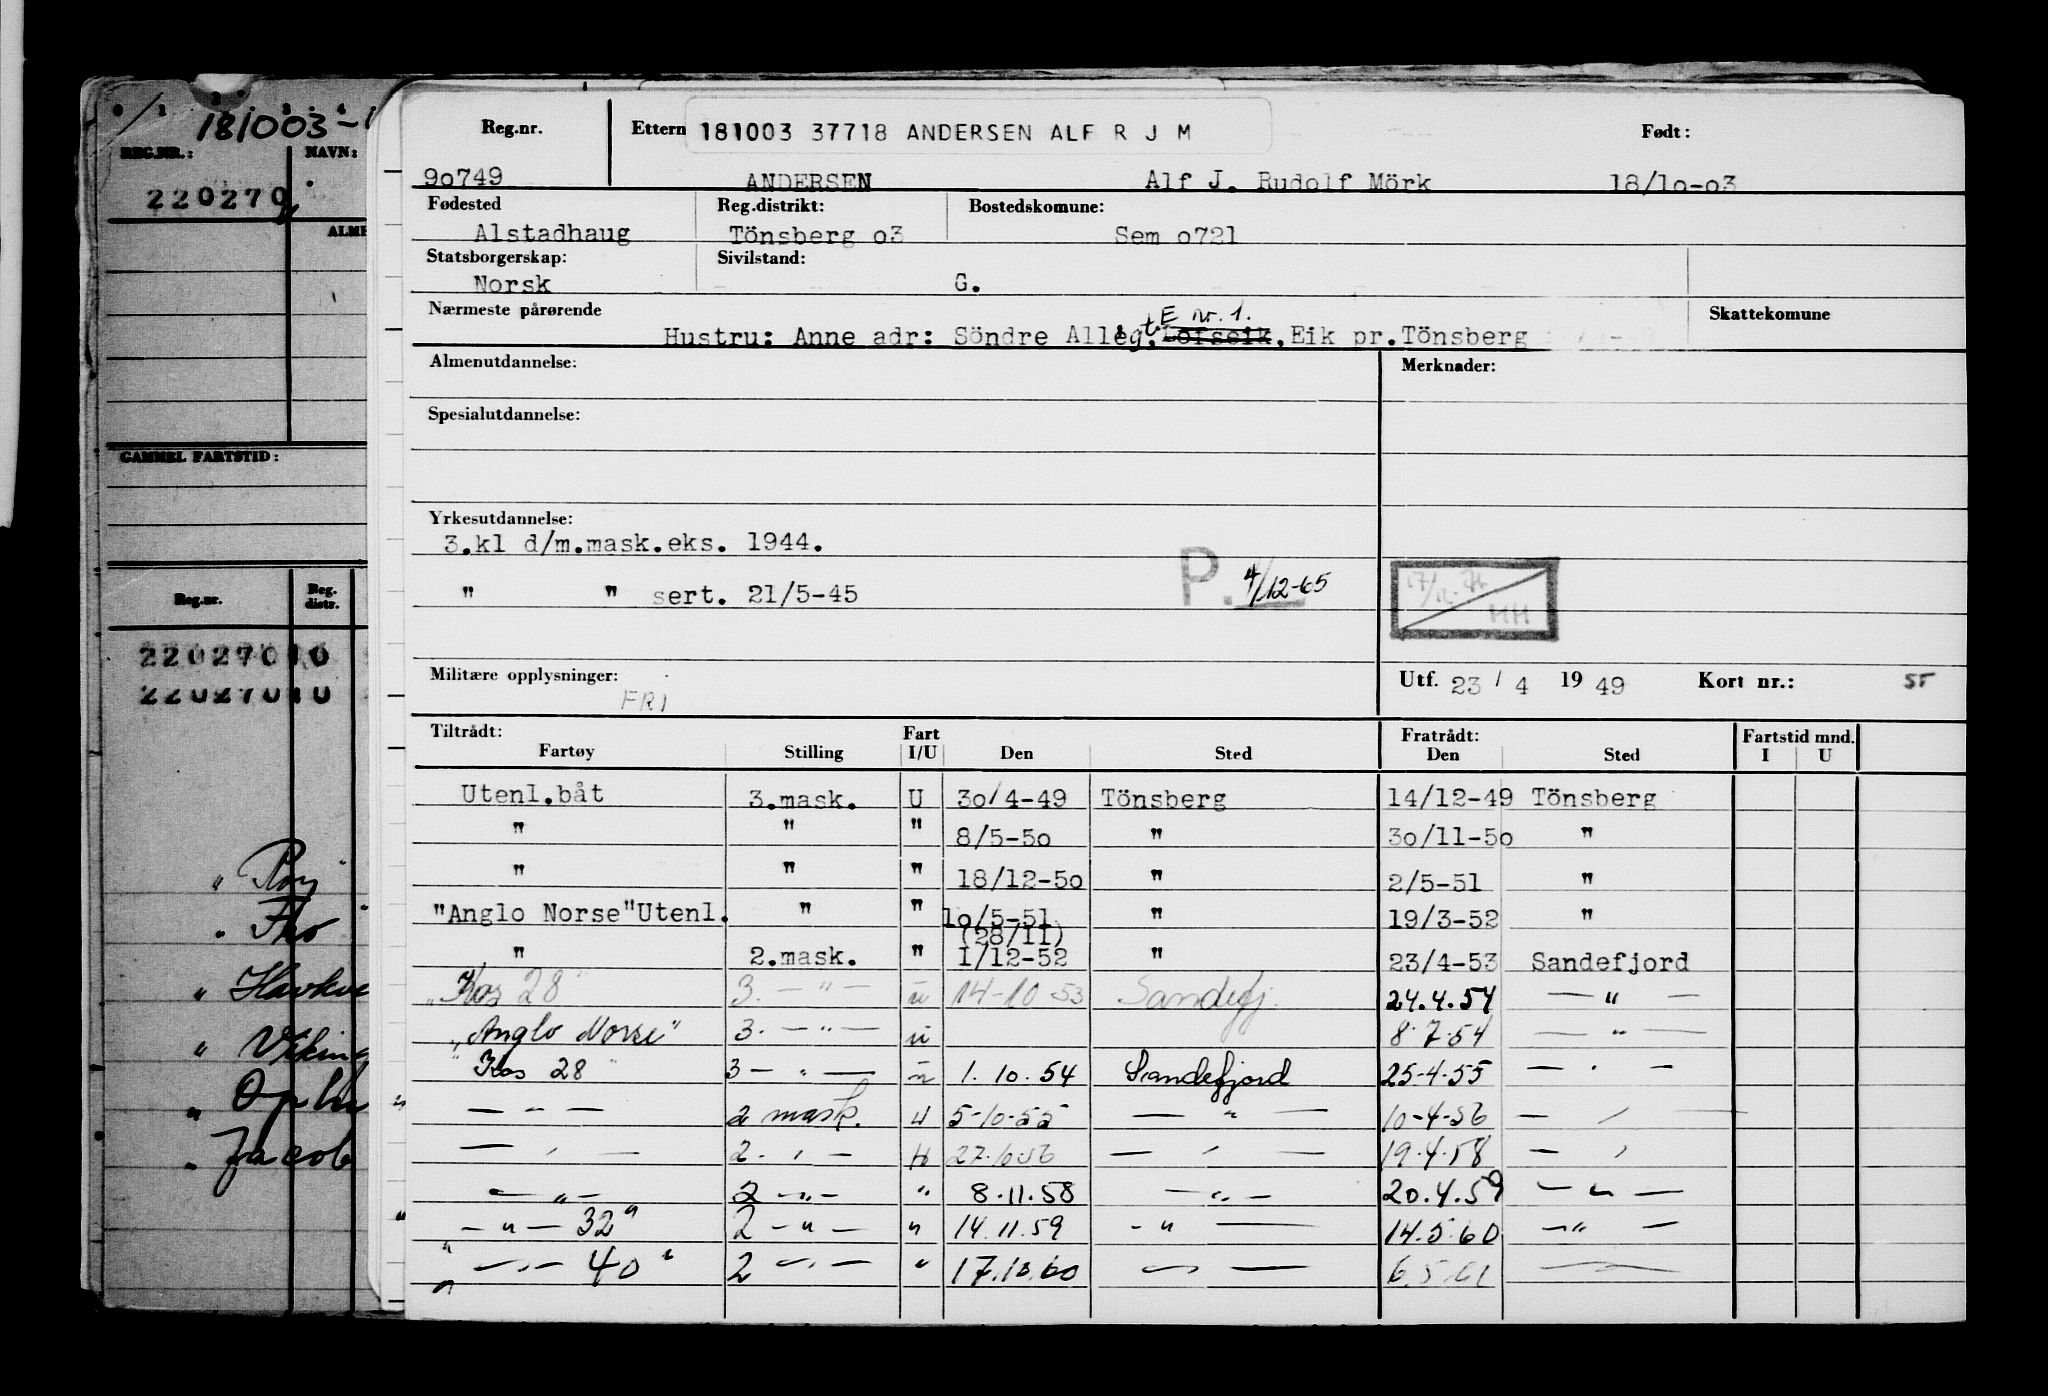 181003-1
REG.NR.:
NAVN:
220270
ALME
GAMMEL FARTSTID:
Reg.nr.
Reg. distr.
22027010
22027010
" Roy
" Tho
" Havkve
" Viking
" Jacob
Reg.nr. Ettern 181003 37718 ANDERSEN ALF R J M Født:
90749 ANDERSEN Alf J. Rudolf Mörk 18/10-03
Fødested Reg.distrikt: Bostedskomune:
Alstadhaug Tönsberg o3 Sem o721
Statsborgerskap: Sivilstand:
Norsk G.
Nærmeste pårørende E nr. 1. Skattekomune
Hustru: Anne adr: Söndre Allégt. Lofseik, Eik pr.Tönsberg
Almenutdannelse: Merknader:
Spesialutdannelse:
Yrkesutdannelse:
3.kl d/m.mask.eks. 1944.
" " sert. 21/5-45 P. 4/12-65
HH
Militære opplysninger: FRI Utf. 23 / 4 19 49 Kort nr.: 55
Tiltrådt: Fart Fratrådt: Fartstid mnd.
Fartøy Stilling I/U Den Sted Den Sted I U
Utenl.båt 3.mask. U 3o/4-49 Tönsberg 14/12-49 Tönsberg
" " " 8/5-5o " 3o/11-5o "
" " " 18/12-5o " 2/5-51 "
"Anglo Norse"Utenl. " " 1o/5-51 " 19/3-52 "
(28/11)
" 2.mask. " 1/12-52 " 23/4-53 Sandefjord
"Kos 28" 3. — " — u 14-10-53 Sandefj. 24.4.54 — " —
"Anglo Norse" 3. — " — u 8.7.54 — " —
"Kos 28" 3 — " — u 1.10.54 Sandefjord 25-4-55 — " —
— " — 2 mask. u 5-10-55 — " — 10-4-56 — " —
— " — 2. " — u 27.10.56 — " — 19.4.58 — "
— " — 2 — " — " 8.11.58 — " — 20.4.59 — " —
" — " — 32" 2 — " — " 14.11.59 — " — 14.5.60 — " —
" — " — 40" 2 — " — " 17.10.60 — " — 6.5.61 — " —